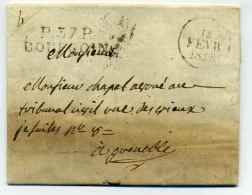 P.37.P.
BOURGOIN
18
FEVR
Monsieur
Monsieur chapel avoué au
tribunal civil rue des vieux
jesuites
à Grenoble